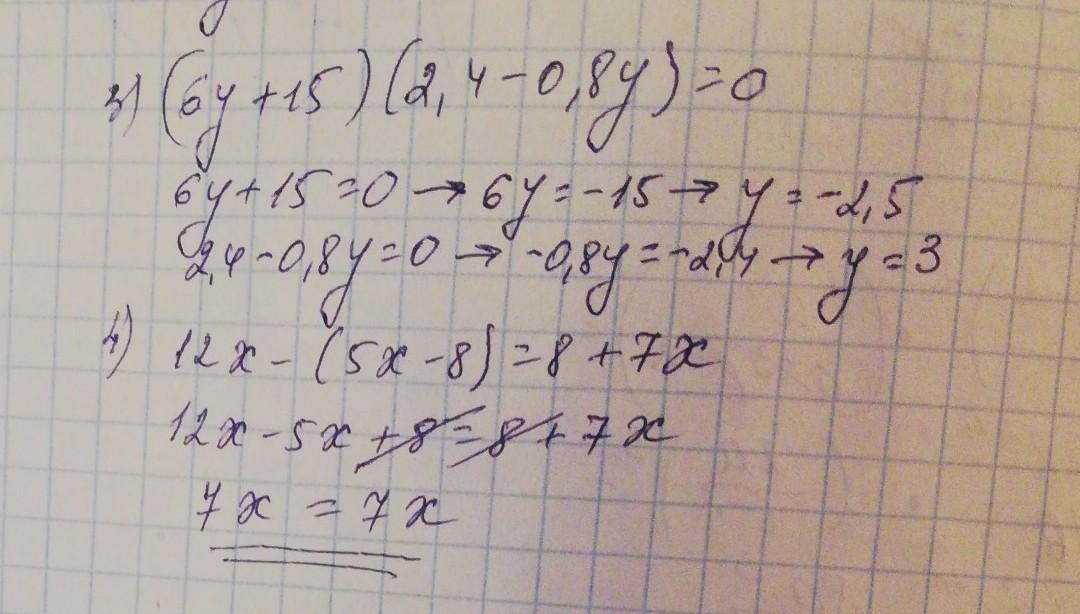 3) (6y+15)(2,4-0,8y)=0
6y+15=0 → 6y=-15 → y=-2,5
2,4-0,8y=0 → -0,8y=-2,4 → y=3
4) 12x-(5x-8)=8+7x
12x-5x+8=8+7x
7x=7x